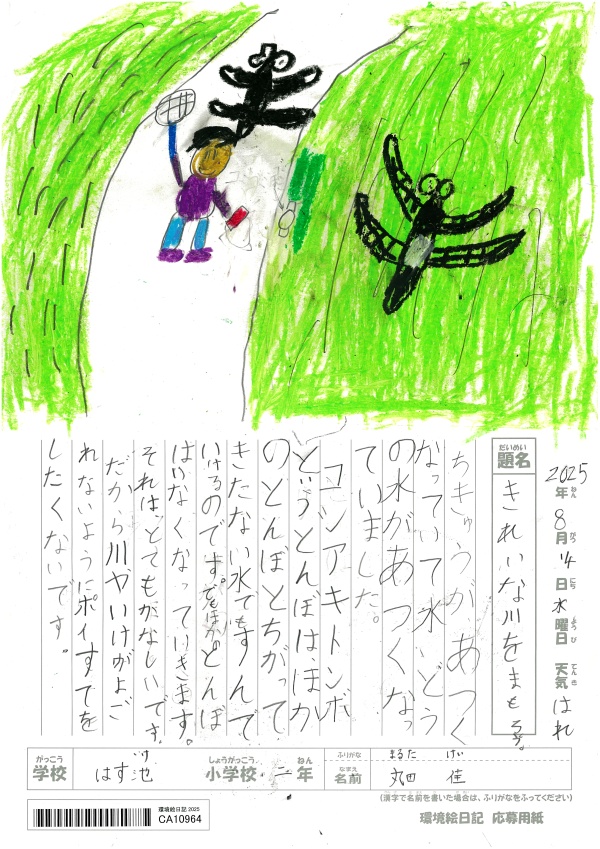 2025年ねん 8月がつ 14日にち 水曜日ようび 天気てんき はれ
題名だいめい きれいな川をまもろう。
ちきゅうが、あつく
なっていて水いどう
の水があつくなっ
ていました。
コシアキトンボ
というとんぼは、ほか
のとんぼとちがって
きたない水でもすんで
いけるのです。でもほかのとんぼ
はいなくなっていきます。
それは、とてもかなしいです。
だから川やいけがよご
れないようにポイすてを
したくないです。
学校がっこう はす池いけ 小学校しょうがっこう 二年ねん
ふりがな まるた けい
名前なまえ 丸田 佳
(漢字で名前を書いた場合は、ふりがなをふってください)
環境絵日記 2025
CA10964
環境絵日記 応募用紙